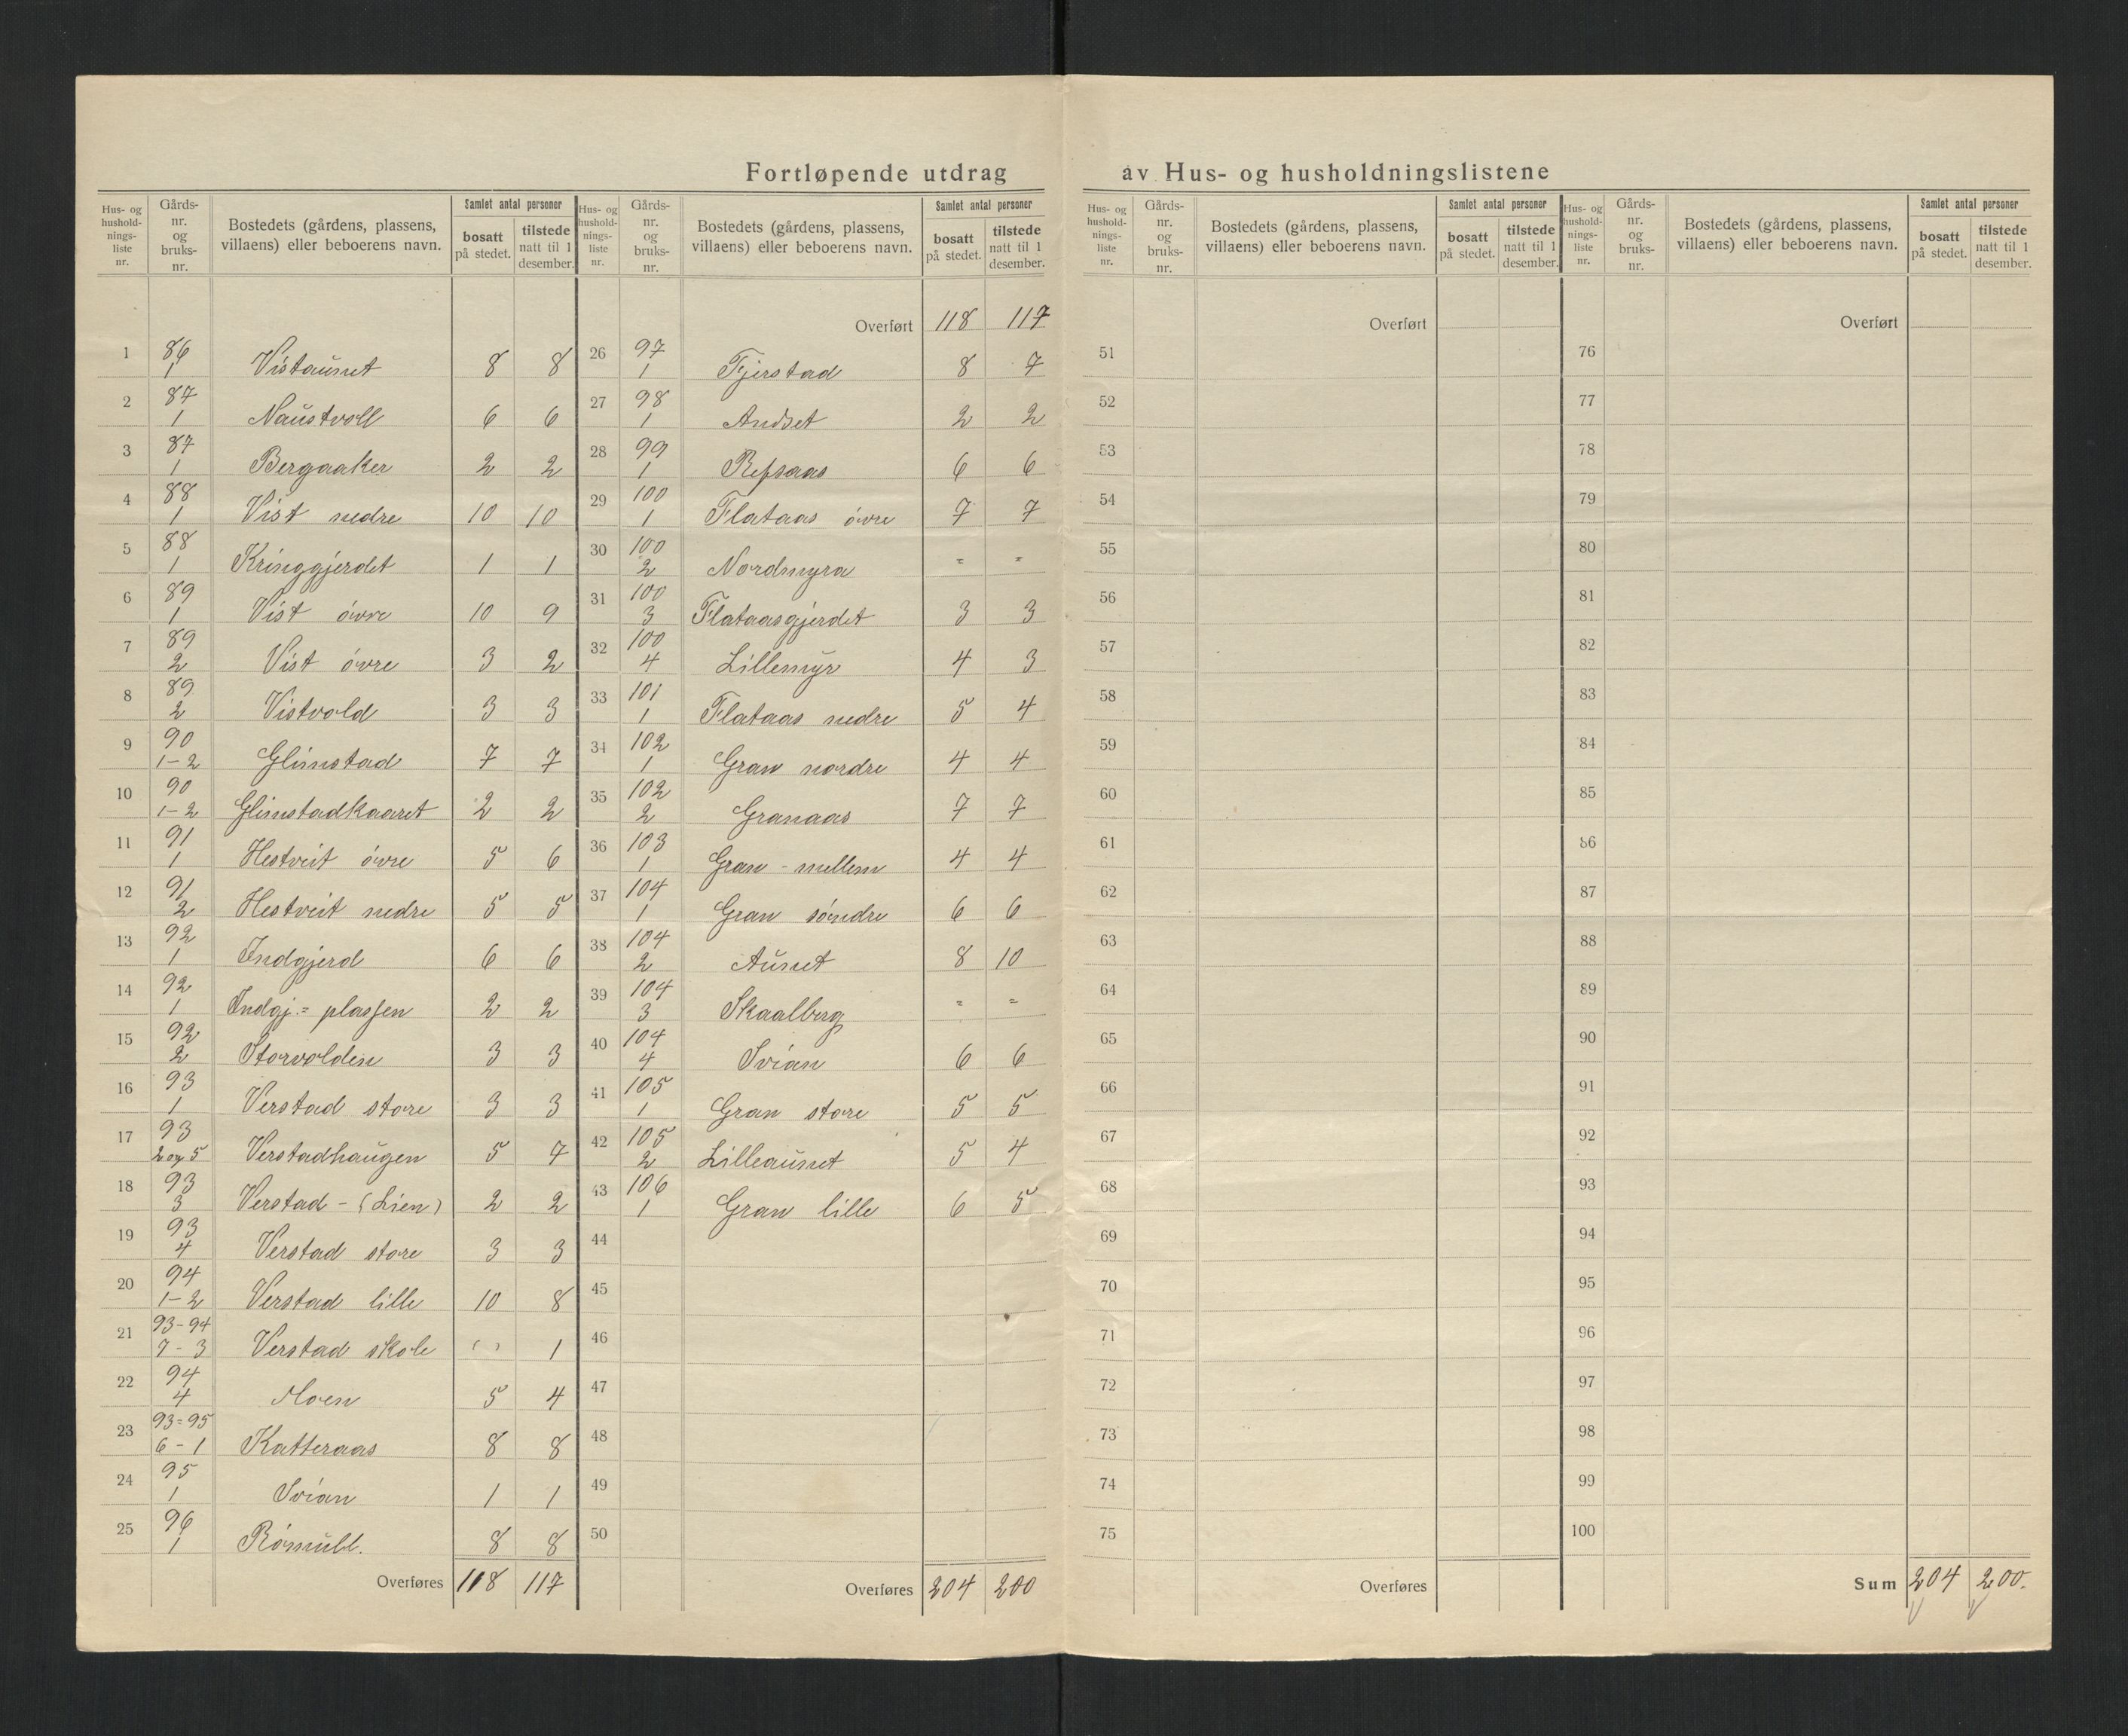 Fortløpende utdrag av Hus- og husholdningslistene
Hus- og hushold-nings-liste nr. | Gårds-nr. og bruks-nr. | Bostedets (gårdens, plassens, villaens) eller beboerens navn. | Samlet antal personer | bosatt på stedet. | tilstede natt til 1 desember.
1 86/1 Vistaunet 8 8
2 87/1 Naustvoll 6 6
3 87/1 Bergaaker 2 2
4 88/1 Vist nedre 10 10
5 88/1 Kringgjerdet 1 1
6 89/1 Vist övre 10 9
7 89/2 Vist övre 3 2
8 89/2 Vistvold 3 3
9 90/1-2 Glimstad 7 7
10 90/1-2 Glimstadkaaret 2 2
11 91/1 Hestveit övre 5 6
12 91/2 Hestveit nedre 5 5
13 92/1 Indgjerd 6 6
14 92/1 Indgj.= plassen 2 2
15 92/2 Storvolden 3 3
16 93/1 Verstad store 3 3
17 93/2 og 5 Verstadhaugen 5 7
18 93/3 Verstad - (Lien) 2 2
19 93/4 Verstad store 3 3
20 94/1-2 Verstad lille 10 8
21 93-94/7-3 Verstad skole " 1
22 94/4 Moen 5 4
23 93=95/6-1 Katteraas 8 8
24 95/1 Svian 1 1
25 96/1 8 8
Overføres 118 117
Hus- og hushold-nings-liste nr. | Gårds-nr. og bruks-nr. | Bostedets (gårdens, plassens, villaens) eller beboerens navn. | Samlet antal personer | bosatt på stedet. | tilstede natt til 1 desember.
Overført 118 117
26 97/1 Fjerstad 8 7
27 98/1 Andset 2 2
28 99/1 Refsaas 6 6
29 100/1 Flataas övre 7 7
30 100/2 Nordmyra = =
31 100/3 Flataasgjerdet 3 3
32 100/4 Lillemyr 4 3
33 101/1 Flataas nedre 5 4
34 102/1 Gran nordre 4 4
35 102/2 Granaas 7 7
36 103/1 Gran - mellem 4 4
37 104/1 Gran söndre 6 6
38 104/2 Aunet 8 10
39 104/3 Skaalberg = =
40 104/4 Svian 6 6
41 105/1 Gran store 5 5
42 105/2 Lilleaunet 5 4
43 106/1 Gran lille 6 5
44
45
46
47
48
49
50
Overføres 204 200
Hus- og hushold-nings-liste nr. | Gårds-nr. og bruks-nr. | Bostedets (gårdens, plassens, villaens) eller beboerens navn. | Samlet antal personer | bosatt på stedet. | tilstede natt til 1 desember.
Overført
51
52
53
54
55
56
57
58
59
60
61
62
63
64
65
66
67
68
69
70
71
72
73
74
75
Overføres
Hus- og hushold-nings-liste nr. | Gårds-nr. og bruks-nr. | Bostedets (gårdens, plassens, villaens) eller beboerens navn. | Samlet antal personer | bosatt på stedet. | tilstede natt til 1 desember.
Overført
76
77
78
79
80
81
82
83
84
85
86
87
88
89
90
91
92
93
94
95
96
97
98
99
100
Sum 204 200.